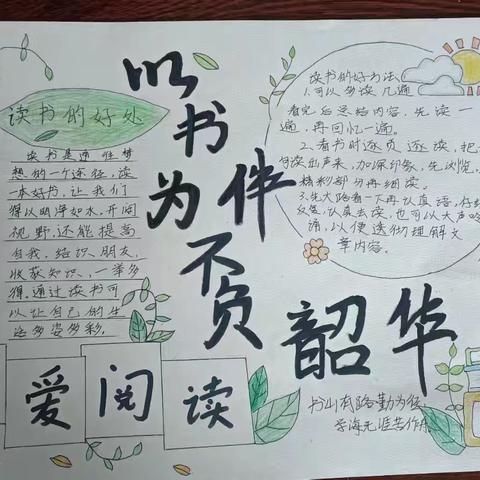 以书为伴
不负韶华
读书的好处
读书是通往梦
想的一个途径,读
一本好书,让我们
得以明净如水,开阔
视野,还能提高
自我,结识,朋友,
收获知识,一举多
得.通过读书可
以让自己的生
活多姿多彩.
读书的好方法
1.可以多读几遍
看完后总结内容,先读一
遍,再回忆一遍。
2.看书时逐页逐读,把
读出声来,加深印象,先浏览,
精彩部分再细读。
3.先大略看一下再认真语,仔细
反复,认真去读,也可以大声
诵,以便透彻理解文
章内容。
爱阅读
书山有路勤为径
学海无涯苦作舟